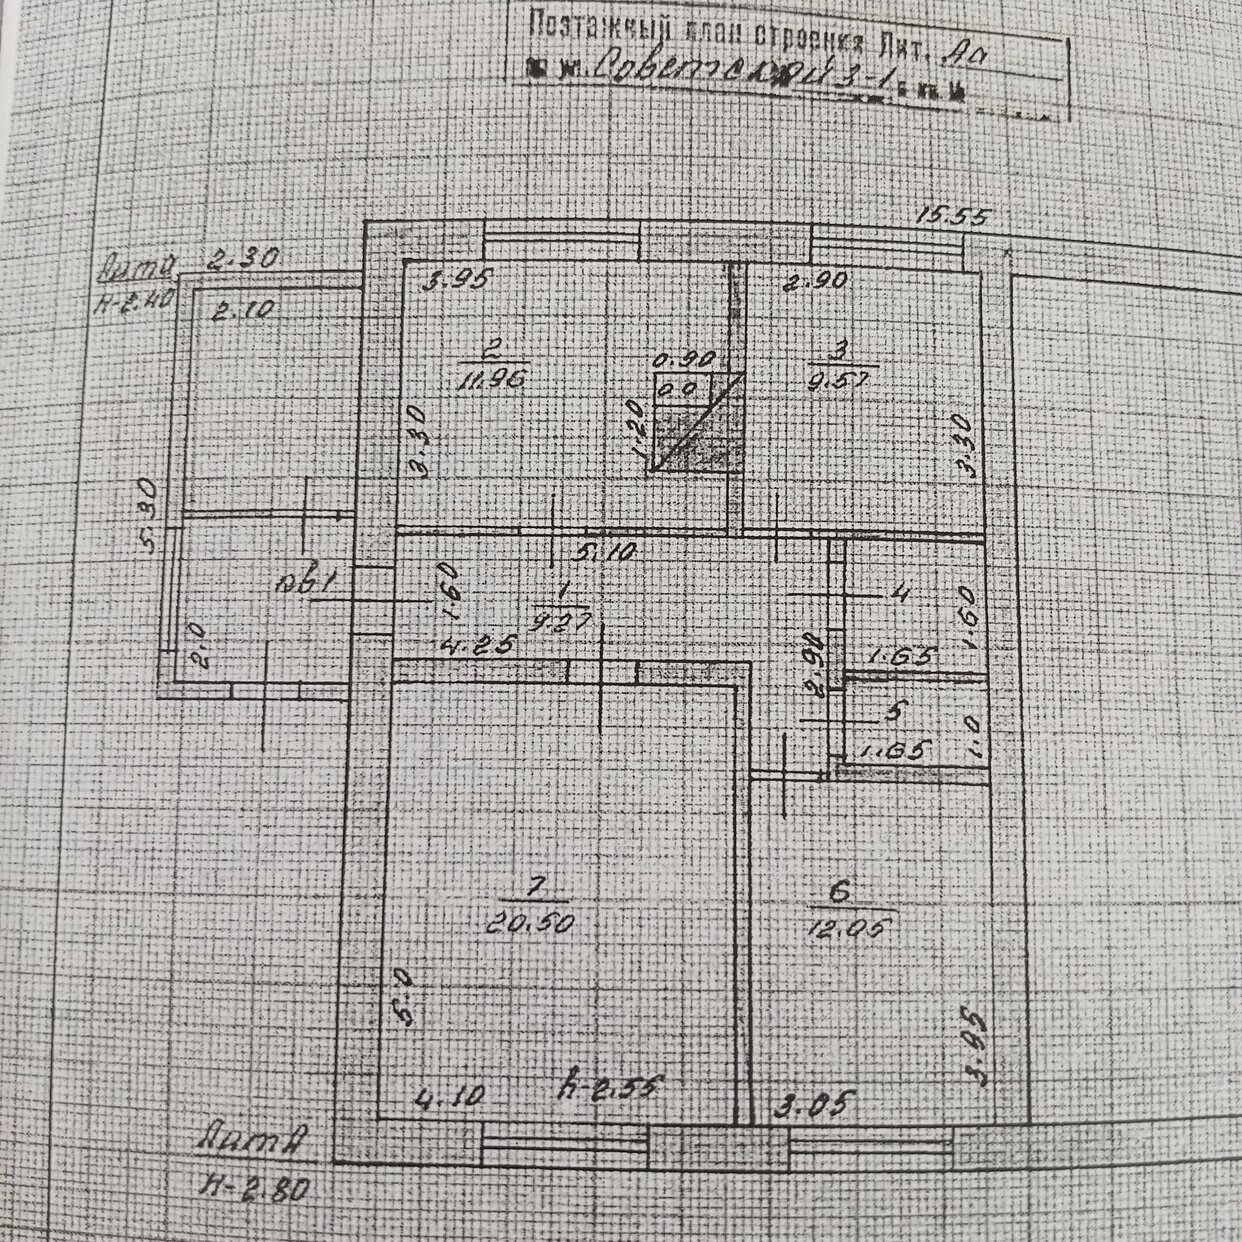 Поэтажный план строения Лит. Аа
по ул. Советской 3-1
15.55
Лит а
Н-2.40
2.30
2.10
3.95
2.90
2
11.96
0.90
3
9.57
3.30
1.20
3.30
5.30
5.10
1.60
1
9.27
4
1.60
2.0
4.25
1.65
2.90
5
1.0
1.65
7
20.50
6
12.05
5.0
3.95
4.10
h-2.55
3.05
Лит А
Н-2.80